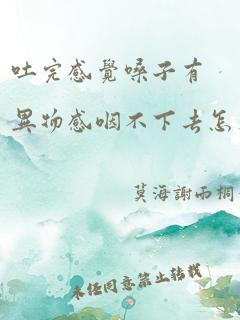 吐完感覺嗓子有
異物感咽不下去怎
莫海謝雨桐
未经同意禁止转载